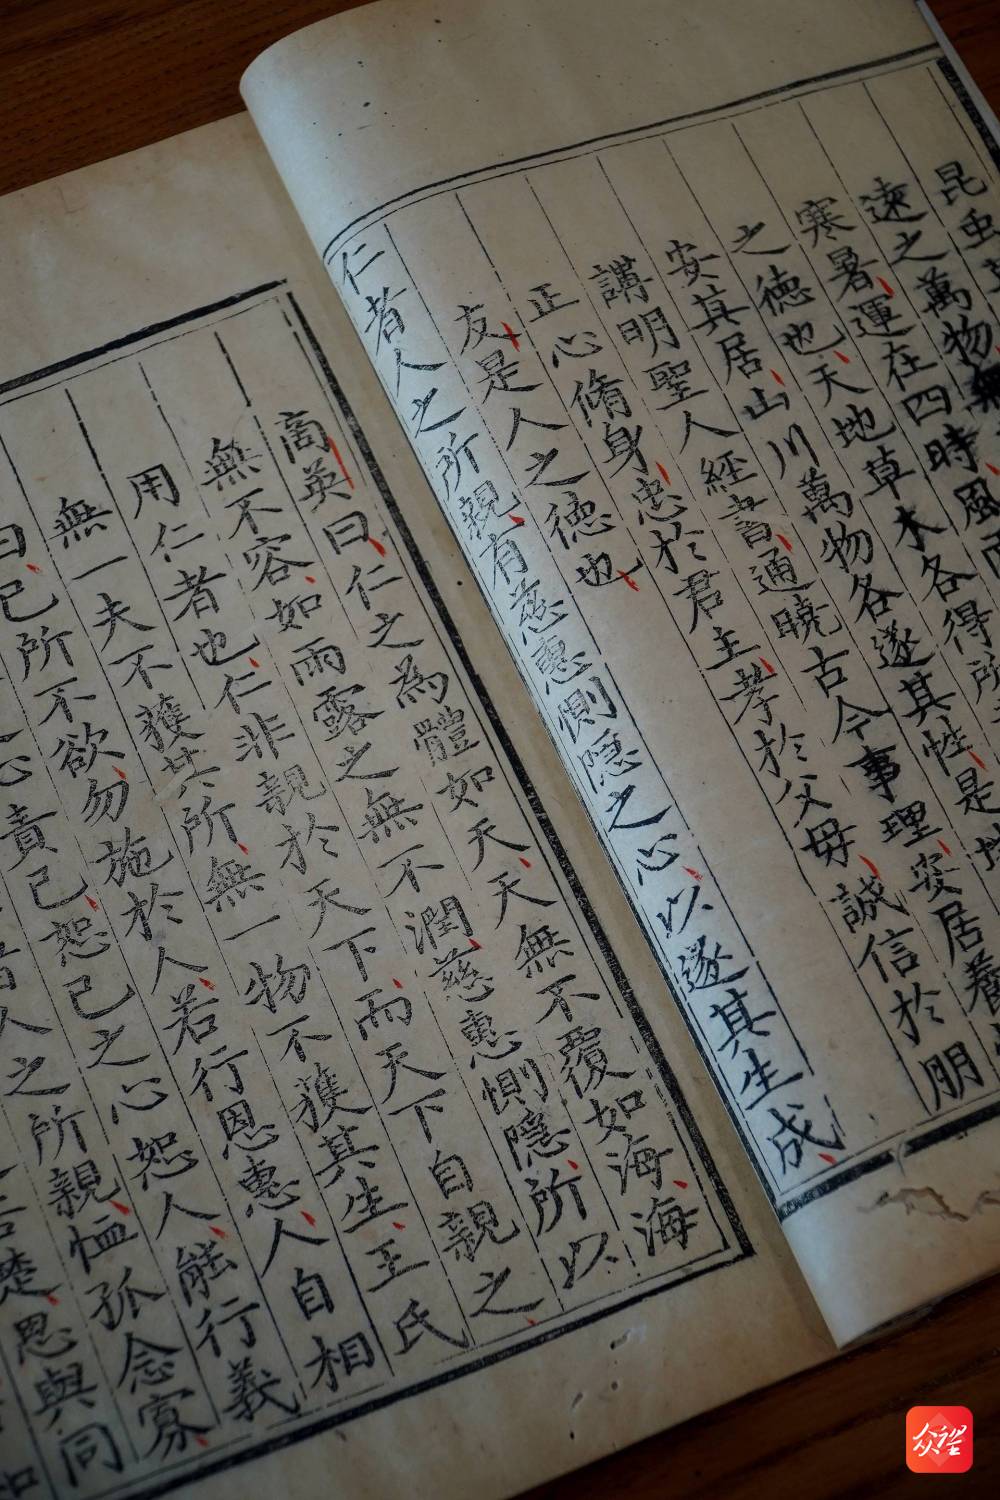 昆虫
遠之萬物
寒暑運在四時風雨
之德也天地草木各得所
安其居山川萬物各遂其性是
講明聖人經書通曉古今事理安居養
正心脩身忠於君主孝於父母誠信於朋
友是人之德也
仁者人之所親有慈惠惻隱之心以遂其生成
高英曰仁之為體如天天無不覆如海海
無不容如雨露之無不潤慈惠惻隱所以
用仁者也仁非親於天下而天下自親之
無一夫不獲其所無一物不獲其生王氏
曰己所不欲勿施於人若行恩惠人自相
心責己恕己之心恕人能行義
者人之所親恤孤念寡
思與同
众望